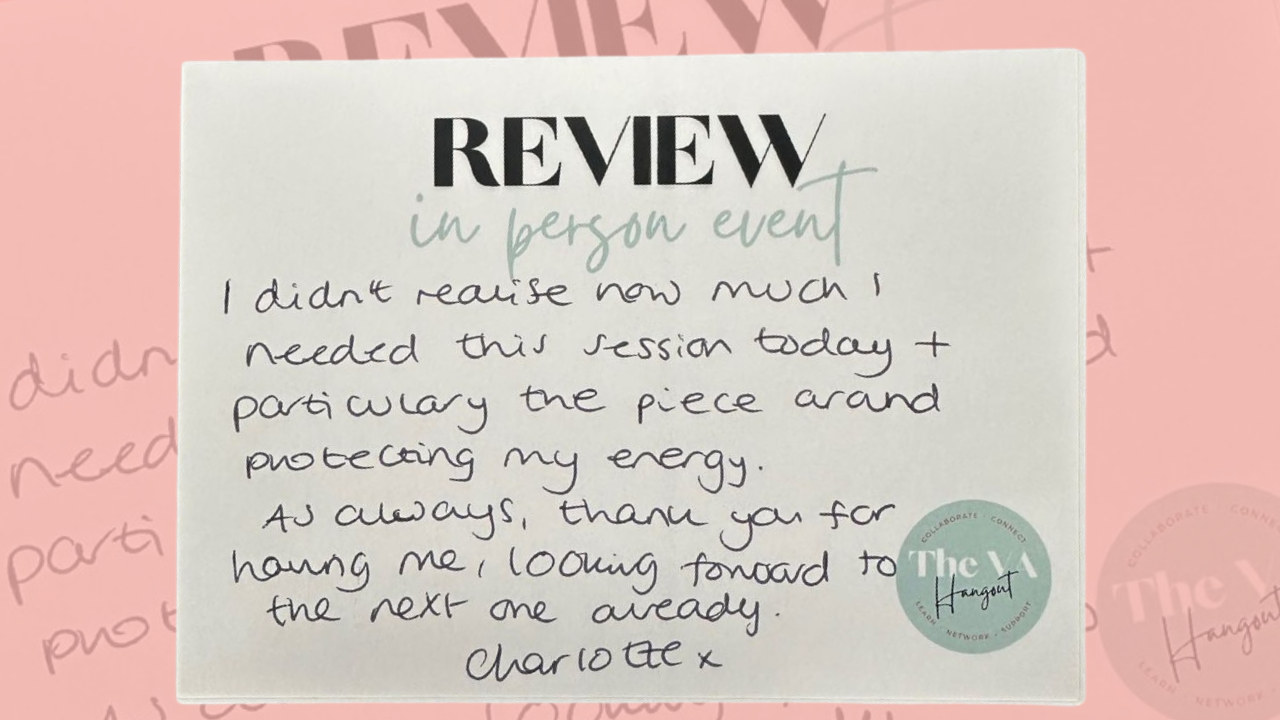 REVIEW
in person event
I didn't realise how much I
needed this session today +
particulary the piece around
protecting my energy.
As always, thank you for
having me, looking forward to
the next one already.
Charlotte x
COLLABORATE · CONNECT
The VA
Hangout
LEARN · NETWORK · SUPPORT